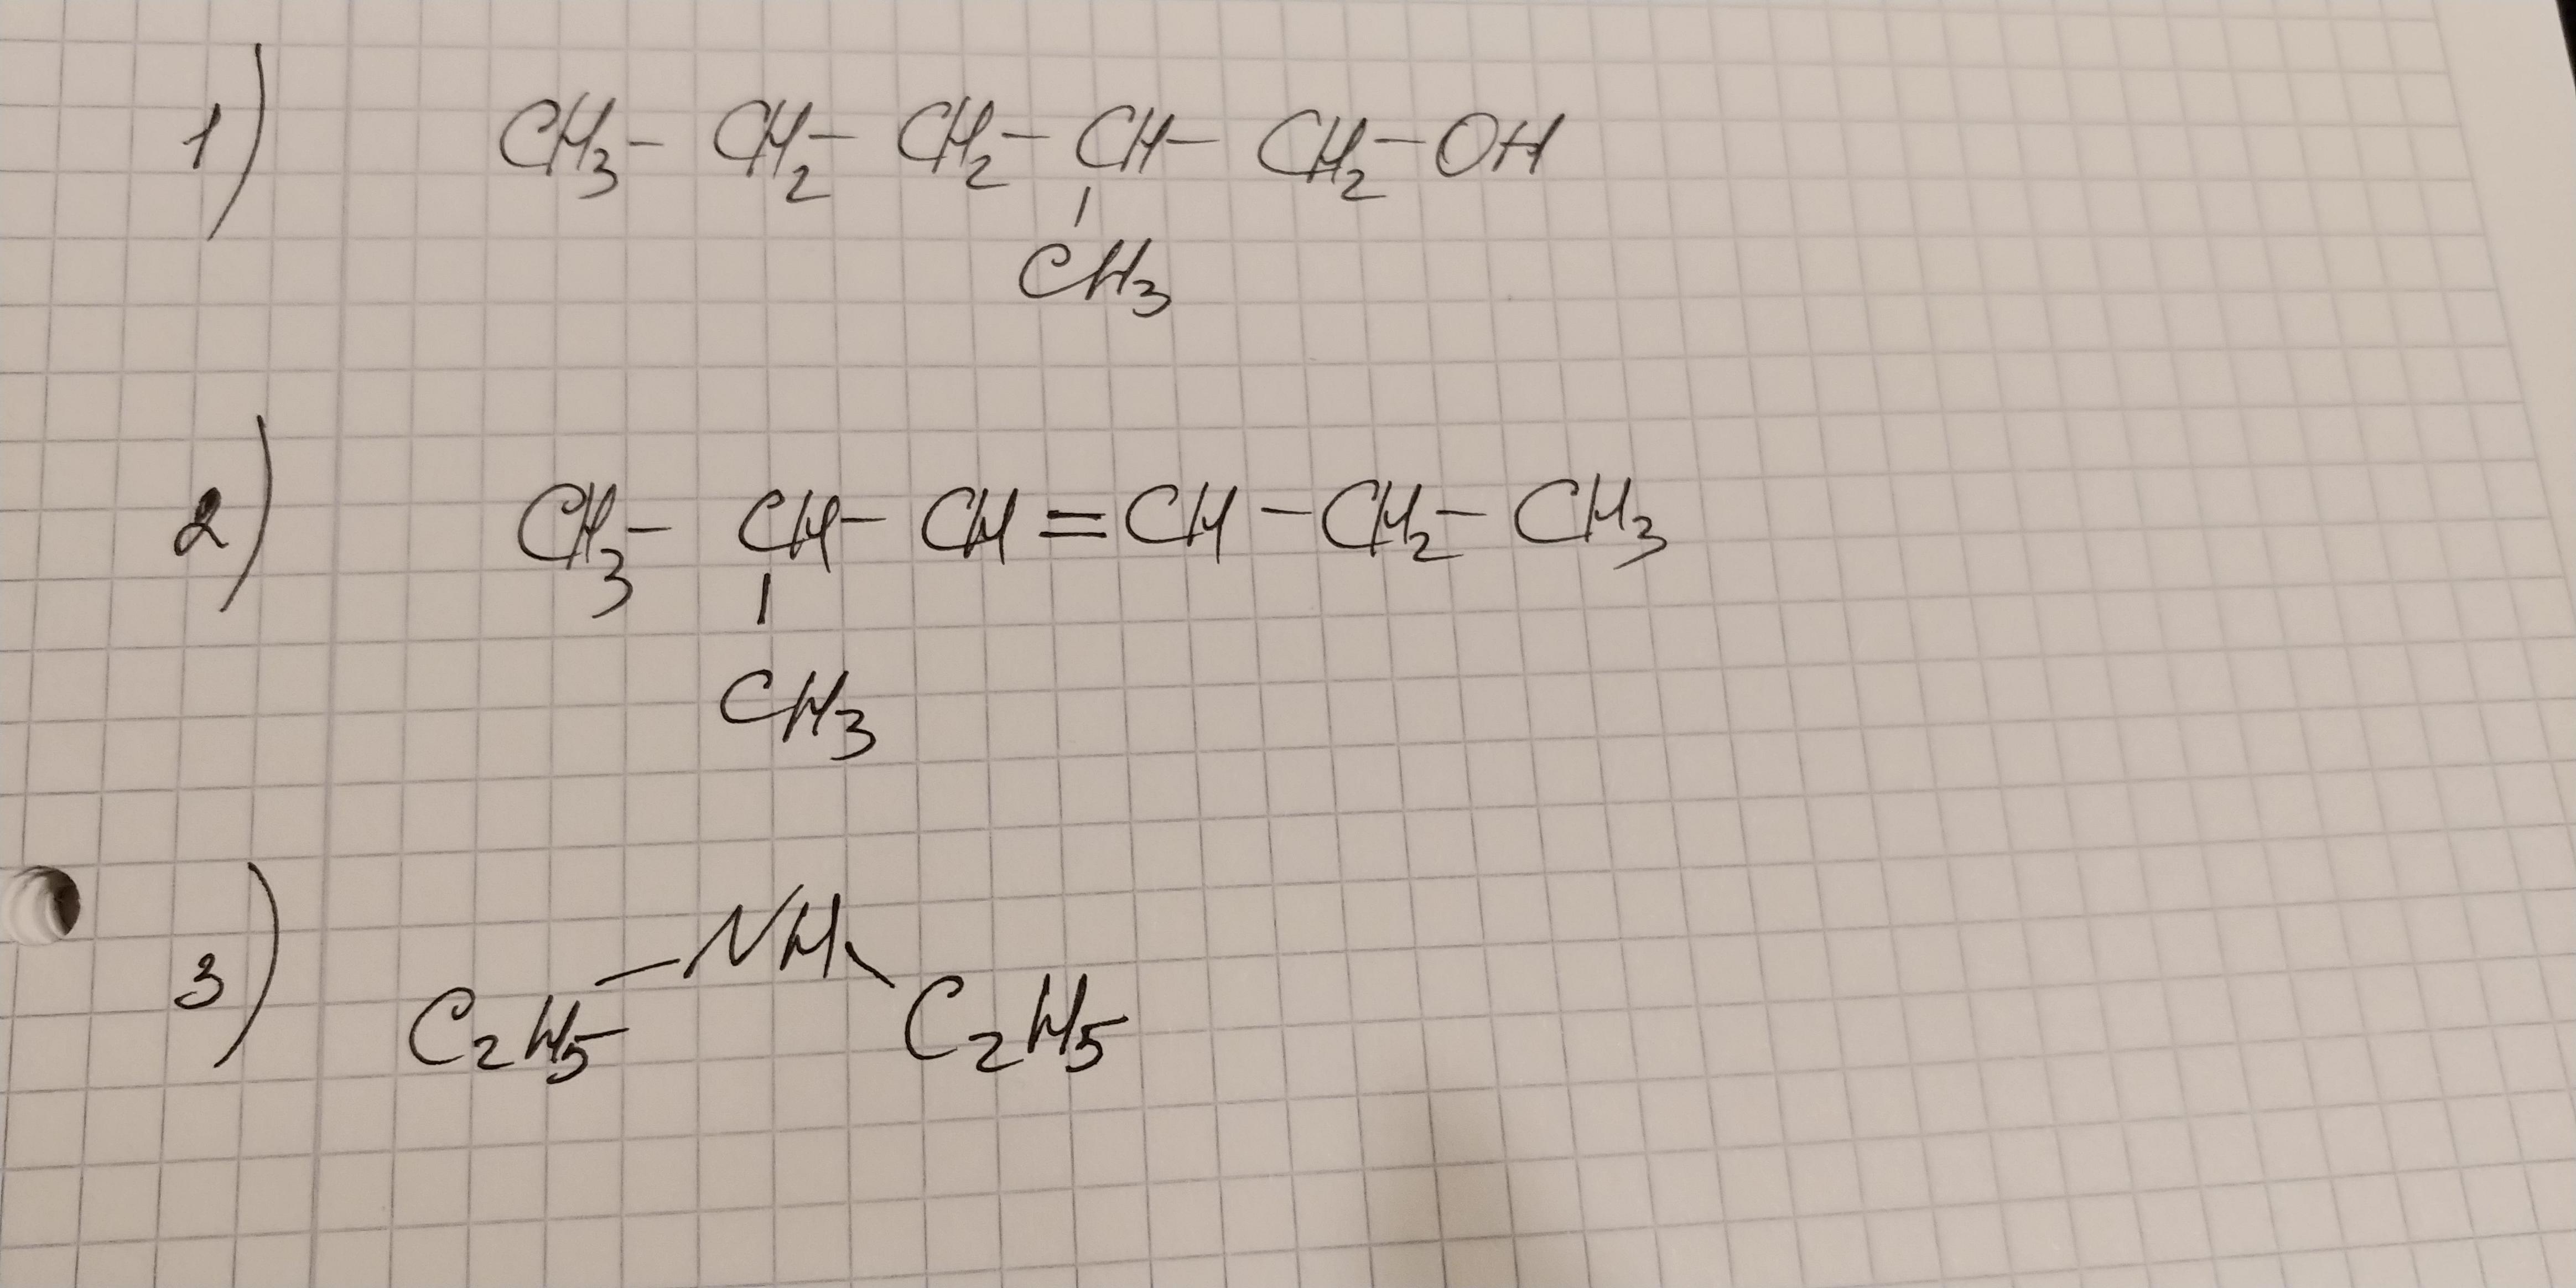 1) CH₃- CH₂- CH₂- CH- CH₂-OH
CH₃
2) CH₃- CH- CH=CH-CH₂- CH₃
CH₃
3) C₂H₅-NH-C₂H₅